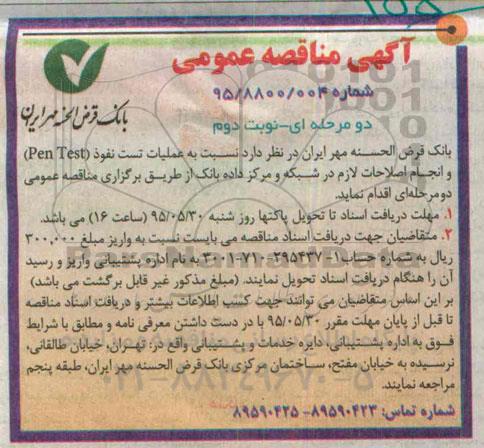 آگهی مناقصه عمومی
شماره ۹۵/۸۸۰۰/۰۰۴
بانک قرض الحسنه مهر ایران
دو مرحله ای-نوبت دوم
بانک قرض الحسنه مهر ایران در نظر دارد نسبت به عملیات تست نفوذ (Pen Test)
و انجام اصلاحات لازم در شبکه و مرکز داده بانک از طریق برگزاری مناقصه عمومی
دومرحله‌ای اقدام نماید.
۱. مهلت دریافت اسناد تا تحویل پاکتها روز شنبه ۹۵/۰۵/۳۰ (ساعت ۱۶) می باشد.
۲. متقاضیان جهت دریافت اسناد مناقصه می بایست نسبت به واریز مبلغ ۳۰۰,۰۰۰
ریال به شماره حساب ۱-۲۹۵۴۳۷-۷۱۰-۳۰۰۱ به نام اداره پشتیبانی واریز و رسید
آن را هنگام دریافت اسناد تحویل نمایند. (مبلغ مذکور غیر قابل برگشت می باشد)
بر این اساس متقاضیان می توانند جهت کسب اطلاعات بیشتر و دریافت اسناد مناقصه
تا قبل از پایان مهلت مقرر ۹۵/۰۵/۳۰ با در دست داشتن معرفی نامه و مطابق با شرایط
فوق به اداره پشتیبانی، دایره خدمات و پشتیبانی واقع در: تهران، خیابان طالقانی،
نرسیده به خیابان مفتح، ساختمان مرکزی بانک قرض الحسنه مهر ایران، طبقه پنجم
مراجعه نمایند.
شماره تماس: ۸۹۵۹۰۴۲۳- ۸۹۵۹۰۴۲۵
۰۲۱-۸۸۳۴۹۶۷۰-۵